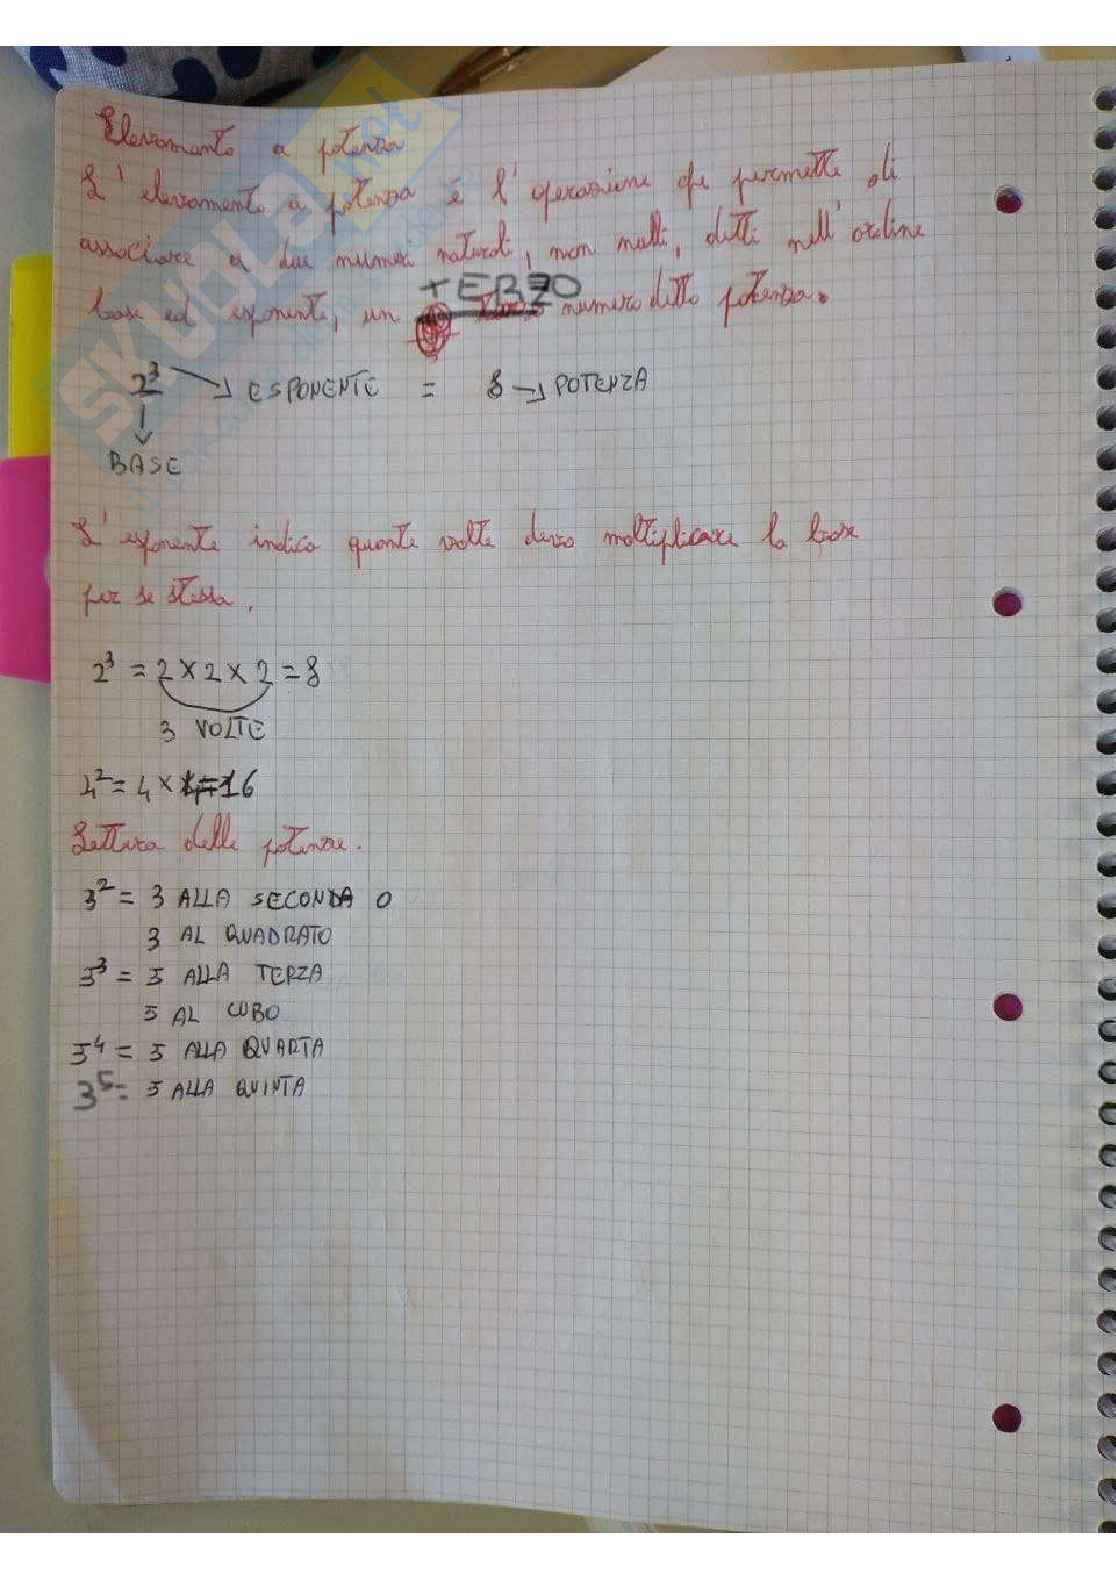 Elevamento a potenza
L'elevamento a potenza è l'operazione che permette di
associare a due numeri naturali, non nulli, detti nell'ordine
base ed esponente, un TERZO numero detto potenza.
2³ → ESPONENTE = 8 → POTENZA
↓
BASE
L'esponente indica quante volte devo moltiplicare la base
per se stessa.
2³ = 2 × 2 × 2 = 8
3 VOLTE
4² = 4 × 4 = 16
Lettura delle potenze.
3² = 3 ALLA SECONDA O
3 AL QUADRATO
3³ = 3 ALLA TERZA
3 AL CUBO
3⁴ = 3 ALLA QUARTA
3⁵ = 3 ALLA QUINTA
SKUOLA.net